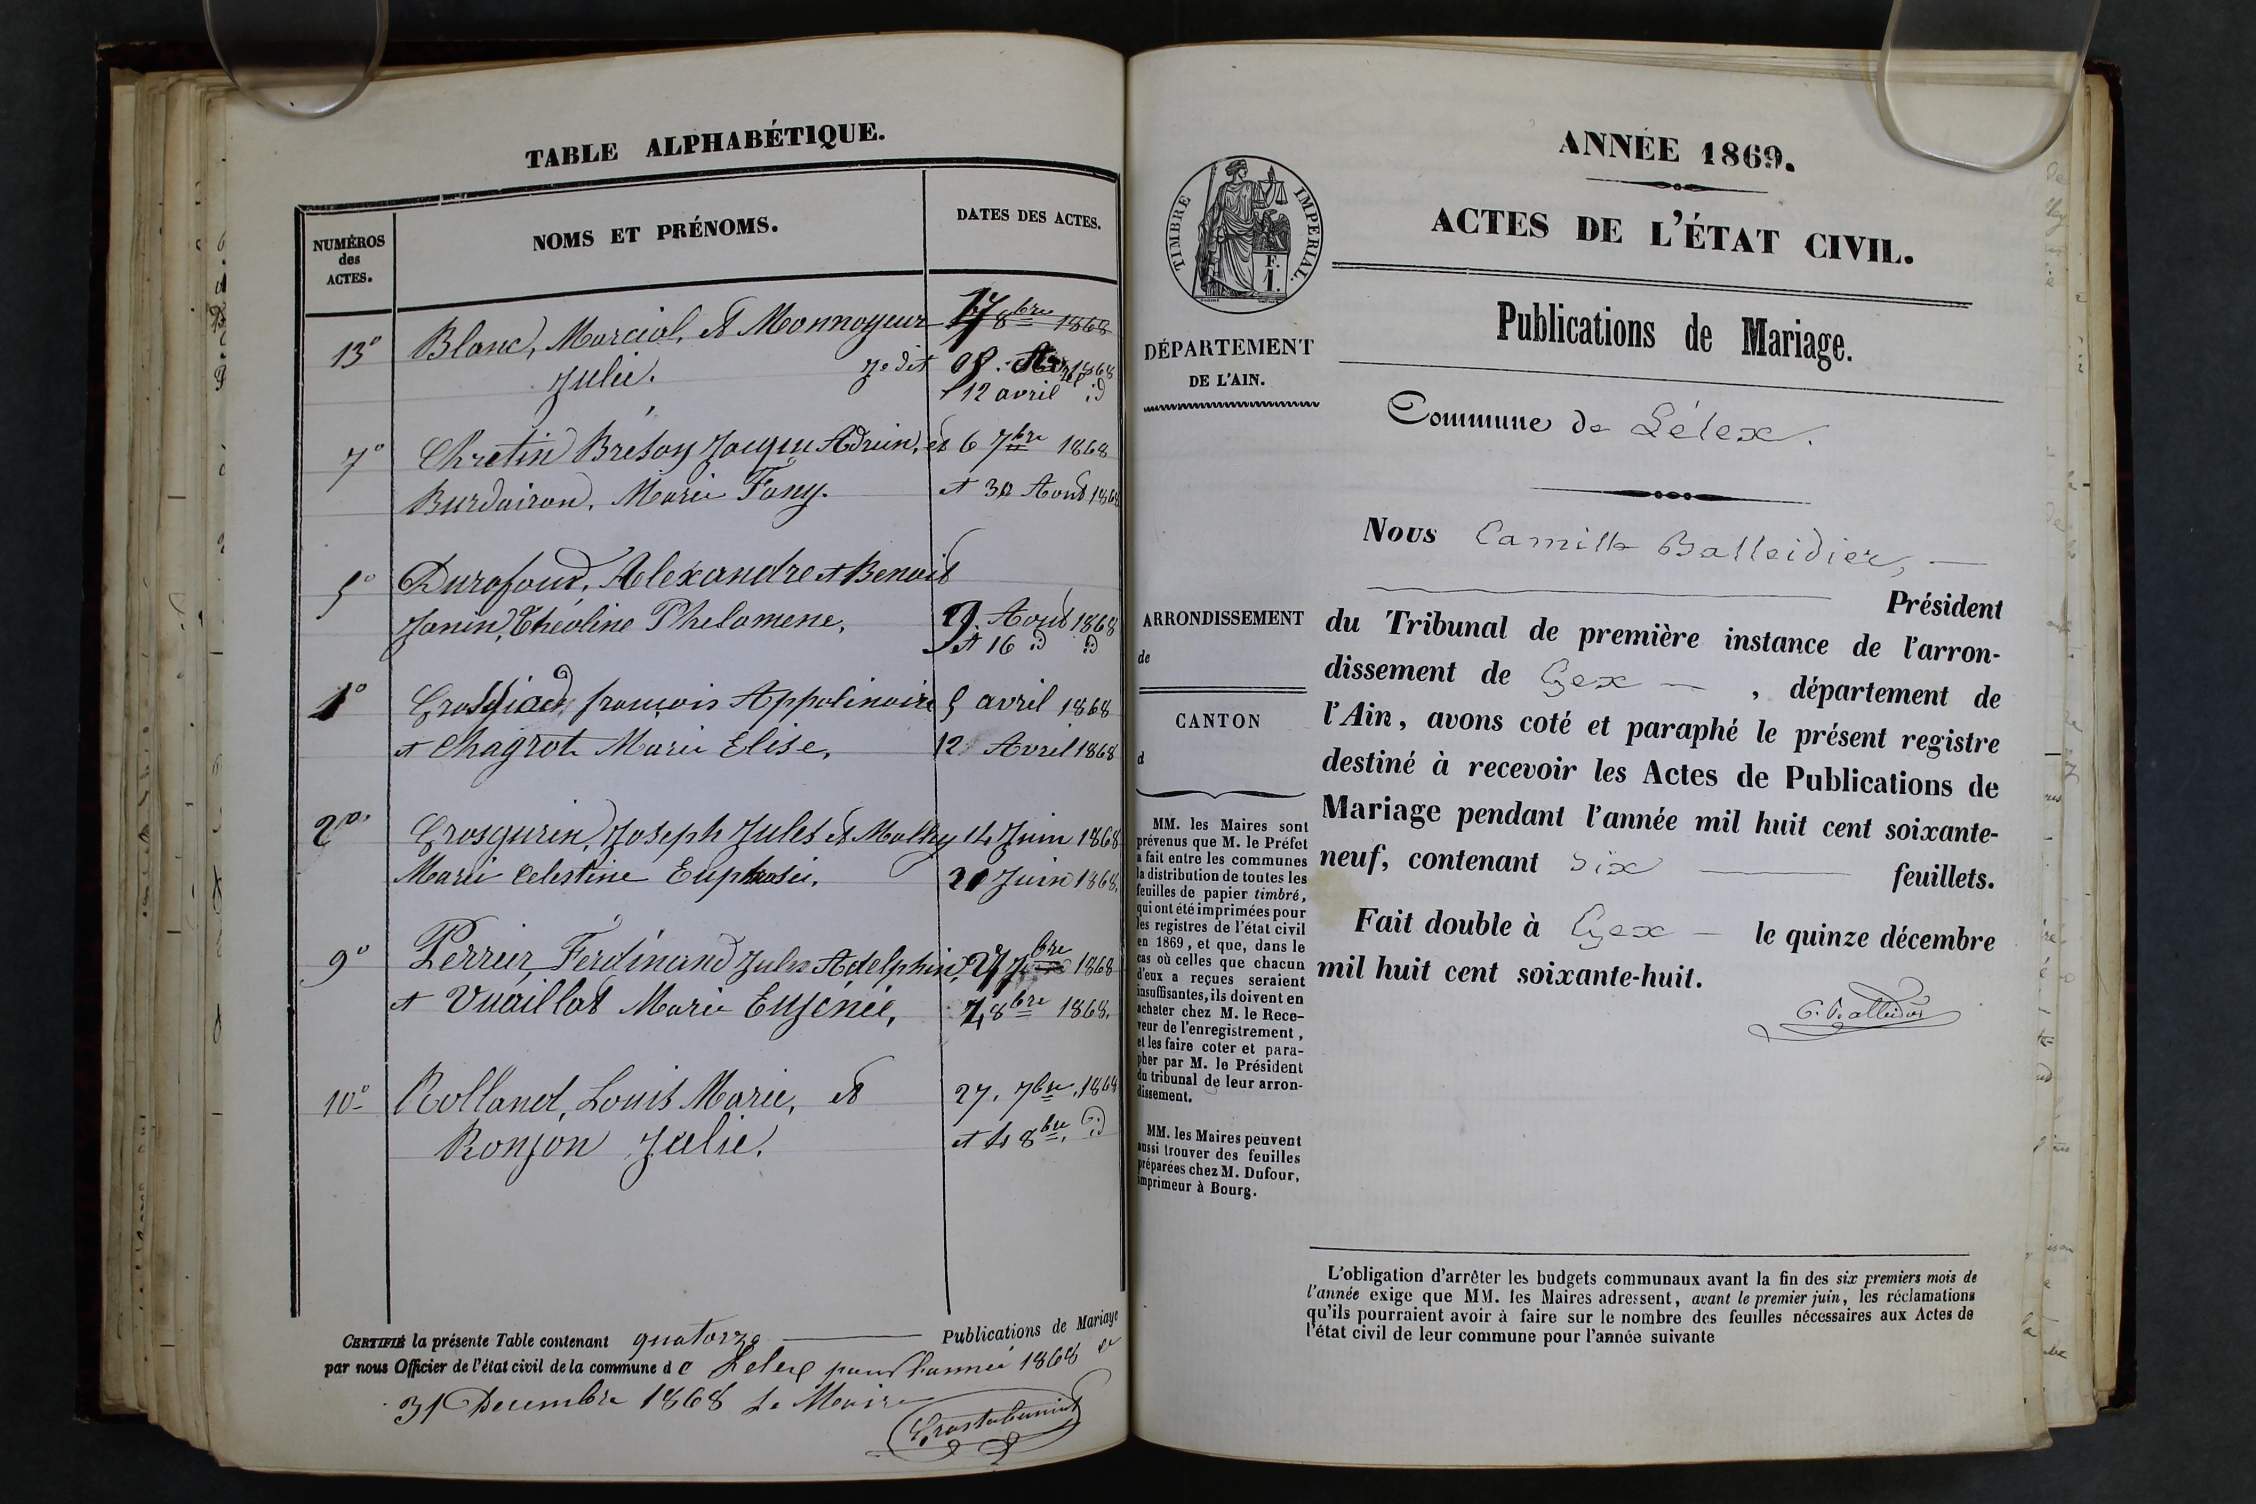 TABLE ALPHABÉTIQUE.
NUMÉROS
des
ACTES.
NOMS ET PRÉNOMS.
DATES DES ACTES.
13° Blanc, Marcial, et Monnoyeur 17 8bre 1868
Julie. 1868
12 avril id
7° Chretin Breson Jaques Adrien, et 6 7bre 1868
Burdairon, Marie Fany. et 30 Aout 1868
5° Durafour, Alexandre et Benoit
Janin, Théoline Phelomene, 9. Aout 1868
et 16 id id
1° Grosfiad françois Appolinaire 5 avril 1868
et Chagrot Marie Elise, 12 Avril 1868
2° Grosgurin, Joseph Jules et Mathy 14 Juin 1868
Marie Celestine Euphrosie. 21 Juin 1868.
9° Perrier, Ferdinand Jules Adelphin, 27 7bre 1868
et Vuaillat Marie Eugénie, 4 8bre 1868.
10° Rolland, Louis Marie, et 27. 7bre. 1868
Ronjon Julie. et 4 8bre. id
CERTIFIÉ la présente Table contenant quatorze Publications de Mariage
par nous Officier de l'état civil de la commune de Lelex pour l'année 1868 ce
31 Decembre 1868 Le Maire
ANNÉE 1869.
ACTES DE L'ÉTAT CIVIL.
TIMBRE IMPERIAL.
F.
1.
DÉPARTEMENT
DE L'AIN.
Publications de Mariage.
Commune de Lélex.
ARRONDISSEMENT
de
CANTON
d
MM. les Maires sont
prévenus que M. le Préfet
a fait entre les communes
la distribution de toutes les
feuilles de papier timbré,
qui ont été imprimées pour
les registres de l'état civil
en 1869, et que, dans le
cas où celles que chacun
d'eux a reçues seraient
insuffisantes, ils doivent en
acheter chez M. le Rece-
veur de l'enregistrement,
et les faire coter et para-
pher par M. le Président
du tribunal de leur arron-
dissement.
MM. les Maires peuvent
aussi trouver des feuilles
préparées chez M. Dufour,
imprimeur à Bourg.
Nous Camille Balleidier,
Président
du Tribunal de première instance de l'arron-
dissement de Gex, département de
l'Ain, avons coté et paraphé le présent registre
destiné à recevoir les Actes de Publications de
Mariage pendant l'année mil huit cent soixante-
neuf, contenant six feuillets.
Fait double à Gex le quinze décembre
mil huit cent soixante-huit.
C. Balleidier
L'obligation d'arrêter les budgets communaux avant la fin des six premiers mois de
l'année exige que MM. les Maires adressent, avant le premier juin, les réclamations
qu'ils pourraient avoir à faire sur le nombre des feuilles nécessaires aux Actes de
l'état civil de leur commune pour l'année suivante